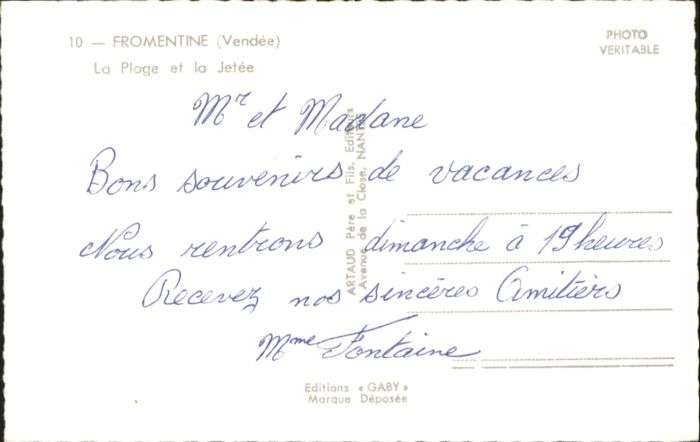 10 — FROMENTINE (Vendée)
La Plage et la Jetée
PHOTO
VERITABLE
Mr et Madane
Bons souvenirs de vacances
Nous rentrons dimanche à 19 heures
Recevez nos sincères Amitiérs
Mme Fontaine
ARTAUD Père et Fils, Editeurs
Avenue de la Close, NANTES
Editions « GABY »
Marque Déposée